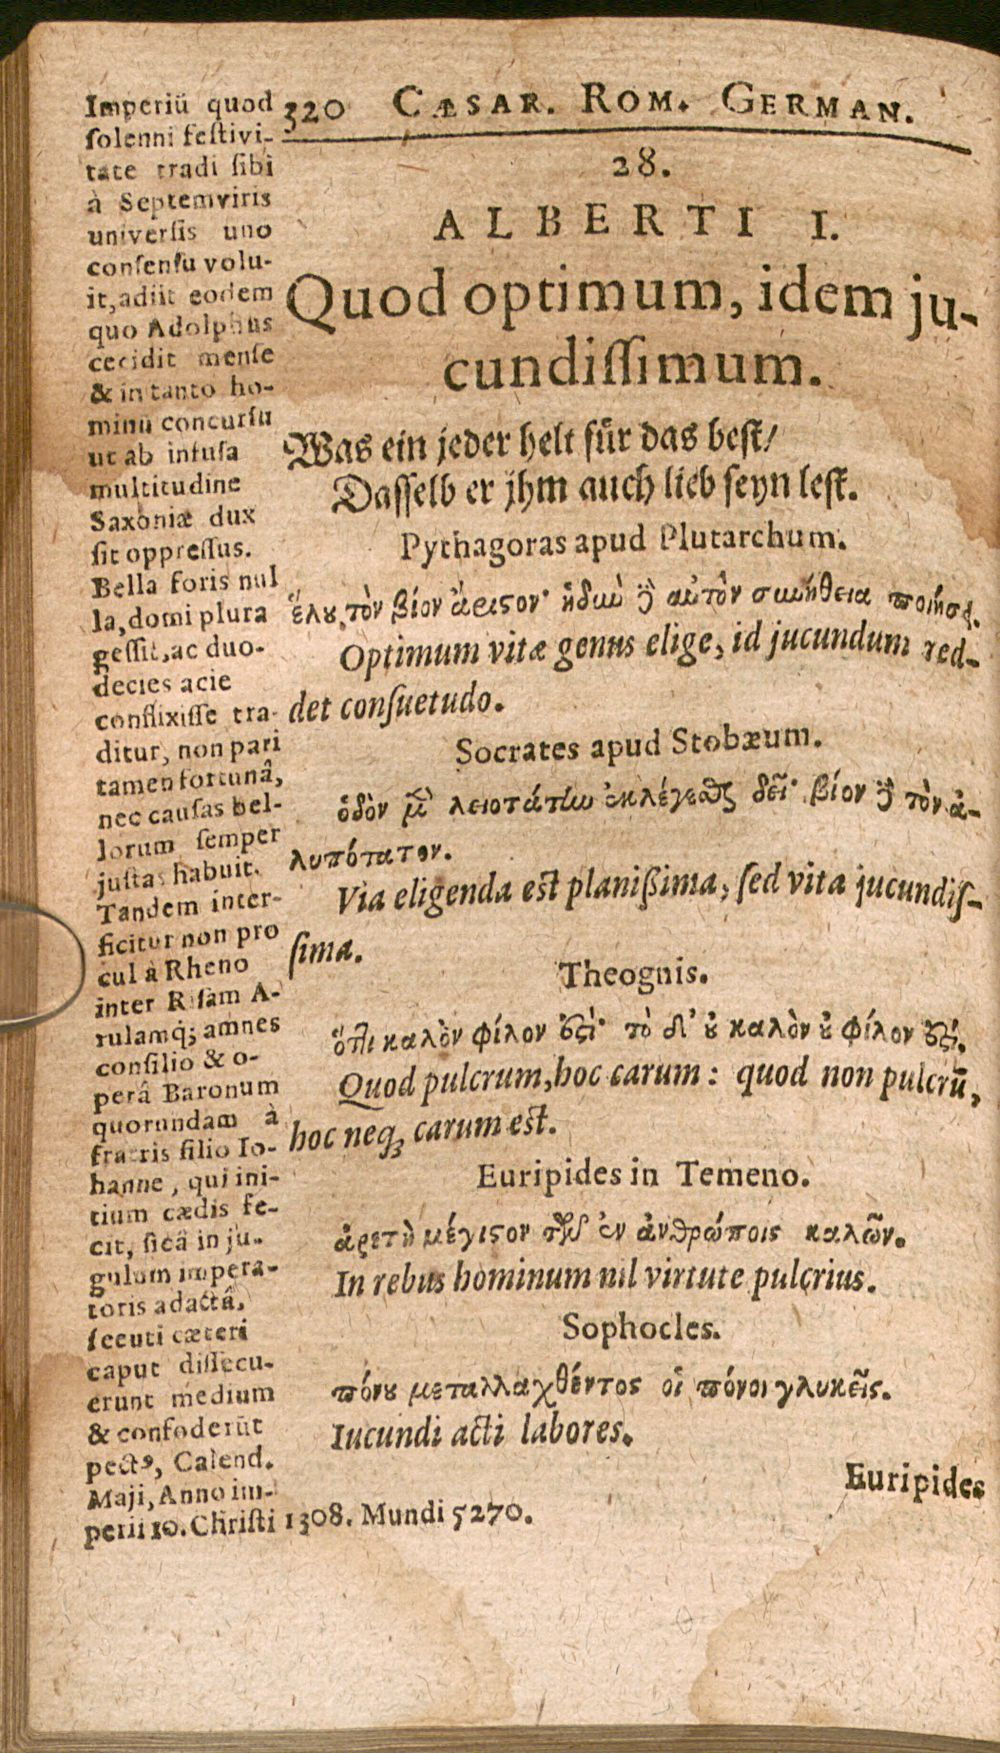 320 CÆSAR. ROM. GERMAN.
28.
ALBERTI I.
Quod optimum, idem ju-
cundiſſimum.
Was ein jeder helt für das beſt/
Daſſelb er jhm auch lieb ſeyn leſt.
Pythagoras apud Plutarchum.
ἕλου τὸν βίον ἄριστον· ἡδιὺ ἢ αὐτὸν συνήθεια ποιήσει.
Optimum vitæ genus elige, id jucundum red-
det conſuetudo.
Socrates apud Stobæum.
ὁδὸν μὲν λειοτάτην ἐκλέγεσθαι δεῖ· βίον δὲ τὸν ἀ-
λυπότατον.
Via eligenda est planißima, ſed vita jucundiſ-
ſima.
Theognis.
ὅτι καλὸν φίλον ἐστί· τὸ δ᾽ οὐ καλὸν οὐ φίλον ἐστί.
Quod pulcrum, hoc carum: quod non pulcrū,
hoc neq; carum est.
Euripides in Temeno.
ἀρετὴ μέγιστον τῶν ἐν ἀνθρώποις καλῶν.
In rebus hominum nil virtute pulcrius.
Sophocles.
πόνου μεταλλαχθέντος οἱ πόνοι γλυκεῖς.
Iucundi acti labores.
Euripides
Imperiū quod
ſolenni feſtivi-
tate tradi ſibi
à Septemviris
univerſis uno
conſenſu volu-
it, adiit eodem
quo Adolphus
cecidit menſe
& in tanto ho-
minū concurſu
ut ab infuſa
multitudine
Saxoniæ dux
ſit oppreſſus.
Bella foris nul
la, domi plura
geſſit, ac duo-
decies acie
conflixiſſe tra-
ditur, non pari
tamen fortunâ,
nec cauſas bel-
lorum ſemper
juſtas habuit.
Tandem inter-
ficitur non pro
cul à Rheno
inter Riſam A-
rulamq; amnes
conſilio & o-
perâ Baronum
quorundam à
fratris filio Io-
hanne, qui ini-
tium cædis fe-
cit, ſicâ in ju-
gulum impera-
toris adactâ,
ſecuti cæteri
caput diſſecu-
erunt medium
& confoderūt
pectꝰ, Calend.
Maji, Anno im-
perii 10. Chriſti 1308. Mundi 5270.